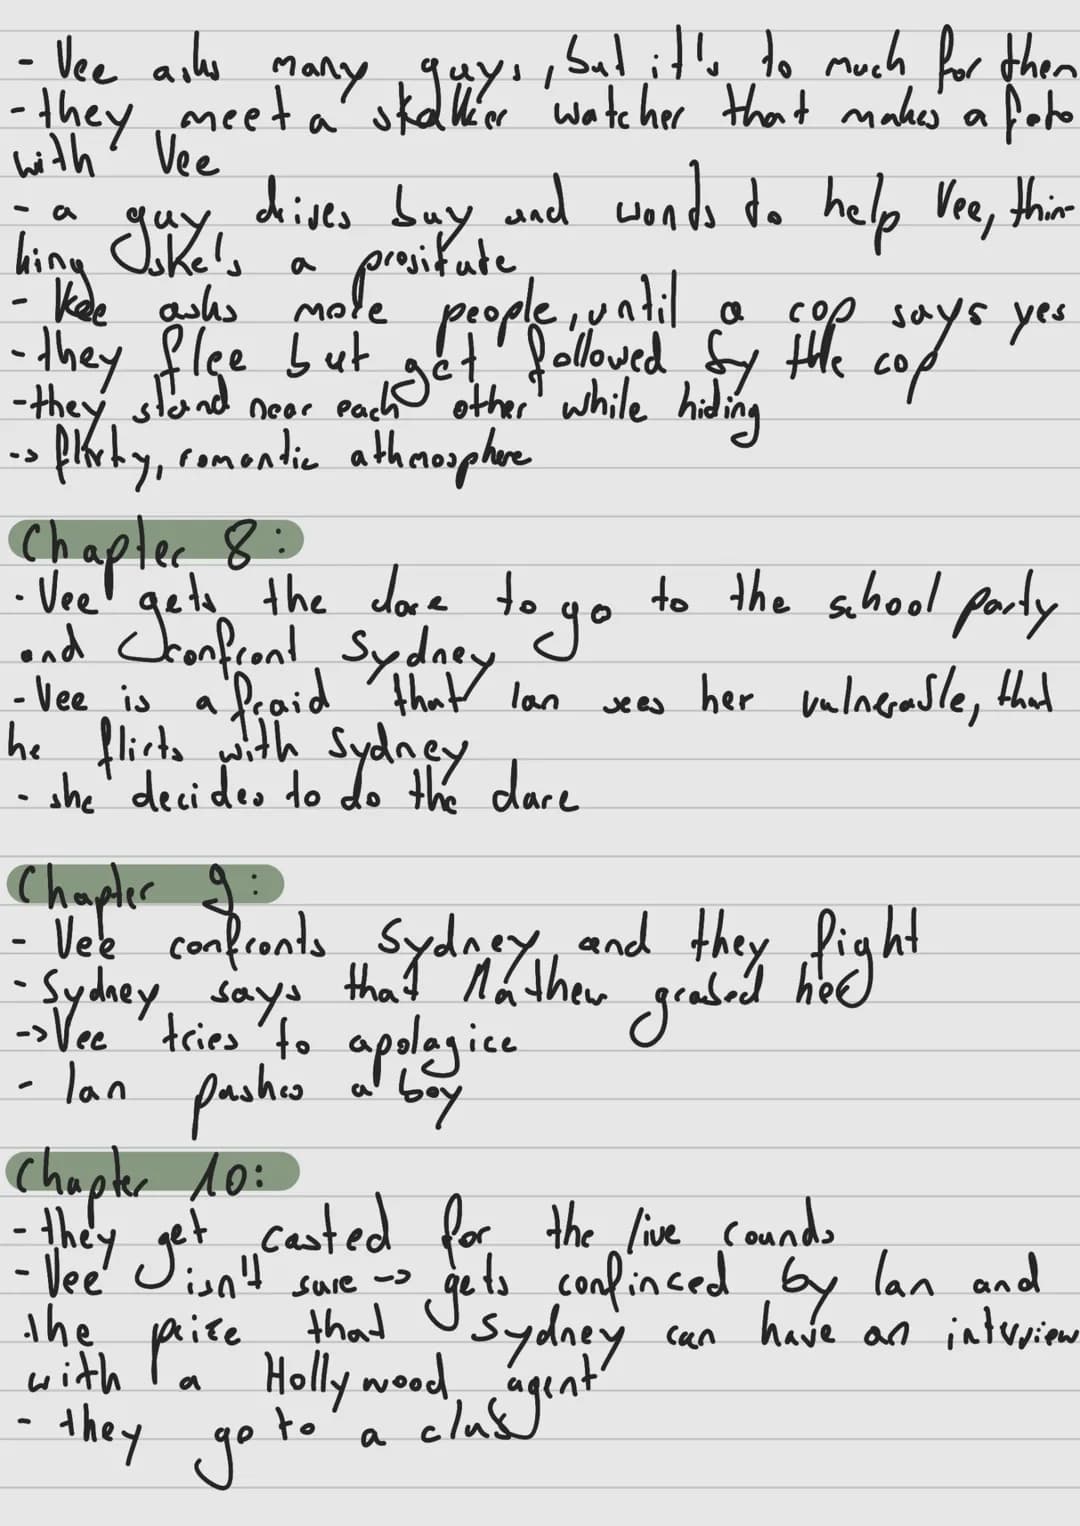 - Vee asks many guys, but it's to much for them
- they meet a stalker watcher that makes a foto
with Vee
- a guy drives buy and wonds to help Vee, thin-
king she's a prositute
- Vee asks more people, until a cop says yes
- they flee but get followed by the cop
- they stand near each other while hiding
-> flirty, romantic athmosphere
Chapter 8:
- Vee gets the dare to go to the school party
and confront Sydney
- Vee is afraid that Ian sees her vulnerable, that
he flirts with Sydney
- she decides to do the dare
Chapter 9:
- Vee confronts Sydney and they fight
- Sydney says that Mathew grabed her
-> Vee tries to apolagice
- Ian pushes a boy
Chapter 10:
- they get casted for the live rounds
- Vee isn't sure -> gets confinced by Ian and
the prize that Sydney can have an interview
with a Hollywood agent
- they go to a club